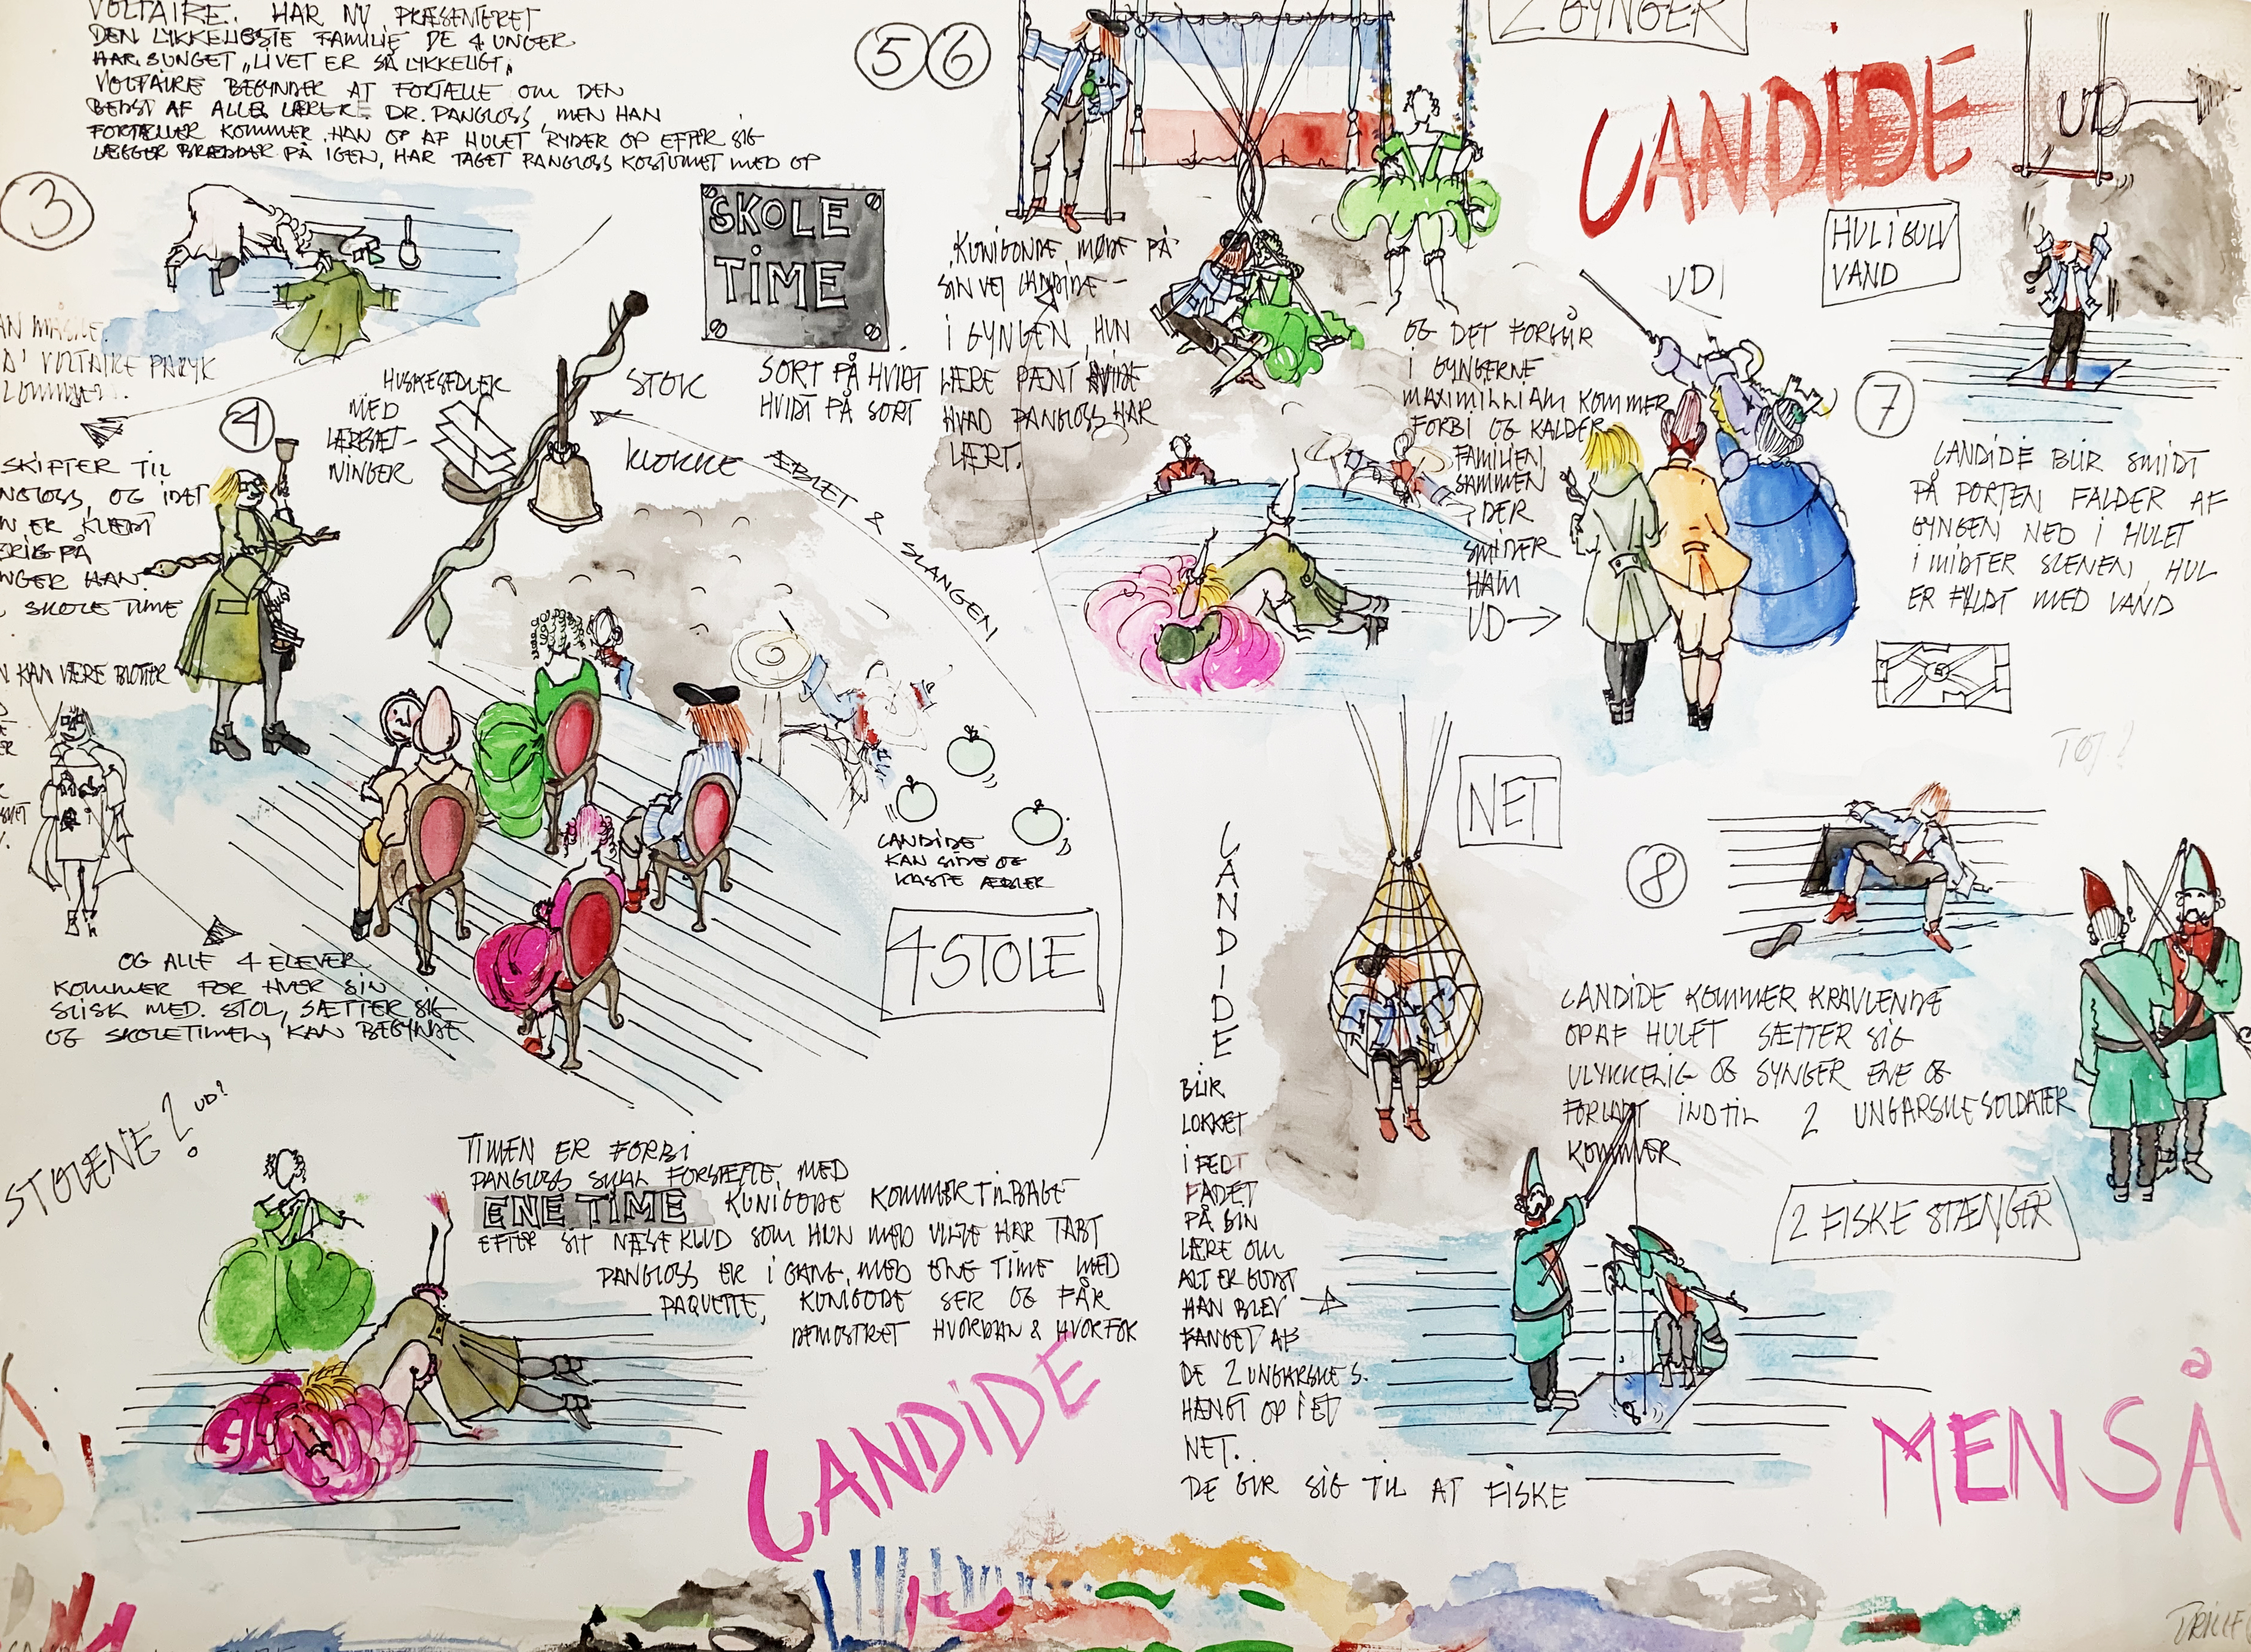 VOLTAIRE. HAR NU PRÆSENTERET
DEN LYKKELIGSTE FAMILIE DE 4 UNGER
HAR SUNGET „LIVET ER SÅ LYKKELIGT„
VOLTAIRE BEGYNDER AT FORTÆLLE OM DEN
BEDST AF ALLE LÆRERE DR. PANGLOSS, MEN HAN
FORTÆLLER KOMMER HAN OP AF HULET RYDER OP EFTER SIG
LÆGGER BRÆDDER PÅ IGEN, HAR TAGET PANGLOSS KOSTUMET MED OP
3
VOLTAIRE PARYK
SKOLE
TIME
SORT PÅ HVIDT
HVIDT PÅ SORT
HUSKESEDLER
MED
LÆRESÆT-
NINGER
STOK
KLOKKE
ÆBLET & SLANGEN
4
SKIFTER TIL
OG IDET
ER KLÆDT
PÅ
HAN
SKOLE TIME
KAN VÆRE BLOTTER
OG ALLE 4 ELEVER
KOMMER FOR HVER SIN
SLISK MED. STOL, SÆTTER SIG
OG SKOLETIMEN, KAN BEGYNDE
CANDIDE
KAN SIDE OG
KASTE ÆBLER
4 STOLE
STOLENE? UD?
TIMEN ER FORBI
PANGLOSS SKAL FORSÆTTE, MED
ENE TIME KUNIGODE KOMMER TILBAGE
EFTER SIT NÆSEKLUD SOM HUN MED VILJE HAR TABT
PANGLOSS ER I GANG MED ENE TIME MED
PAQUETTE, KUNIGODE SER OG FÅR
DEMOSTRET HVORDAN & HVORFOR
CANDIDE
5 6
2 GYNGER
KUNIGONDE MØDE PÅ
SIN VEJ CANDIDE -
I GYNGEN, HUN
LÆRE PÆNT
HVAD PANGLOSS HAR
LÆRT.
OG DET FORGÅR
I GYNGERNE
MAXIMILLIAM KOMMER
FORBI OG KALDER
FAMILIEN
SAMMEN
DER
SMIDER
HAM
UD
UD!
CANDIDE
UD
HUL I GULV
VAND
7
CANDIDE BLIR SMIDT
PÅ PORTEN FALDER AF
GYNGEN NED I HULET
I MIDTER SCENEN, HUL
ER FYLDT MED VAND
NET
TØJ!
8
CANDIDE KOMMER KRAVLENDE
OP AF HULET SÆTTER SIG
ULYKKELIG OG SYNGER ENE OG
FORLADT INDTIL 2 UNGARSKE SOLDATER
KOMMER
2 FISKE STÆNGER
CANDIDE
BLIR
LOKKET
I FEDT
FADET
PÅ SIN
LÆRE OM
ALT ER GODT
HAN BLEV
FANGET AF
DE 2 UNGARSKE S.
HÆNGT OP I ET
NET..
DE GIR SIG TIL AT FISKE
MEN SÅ